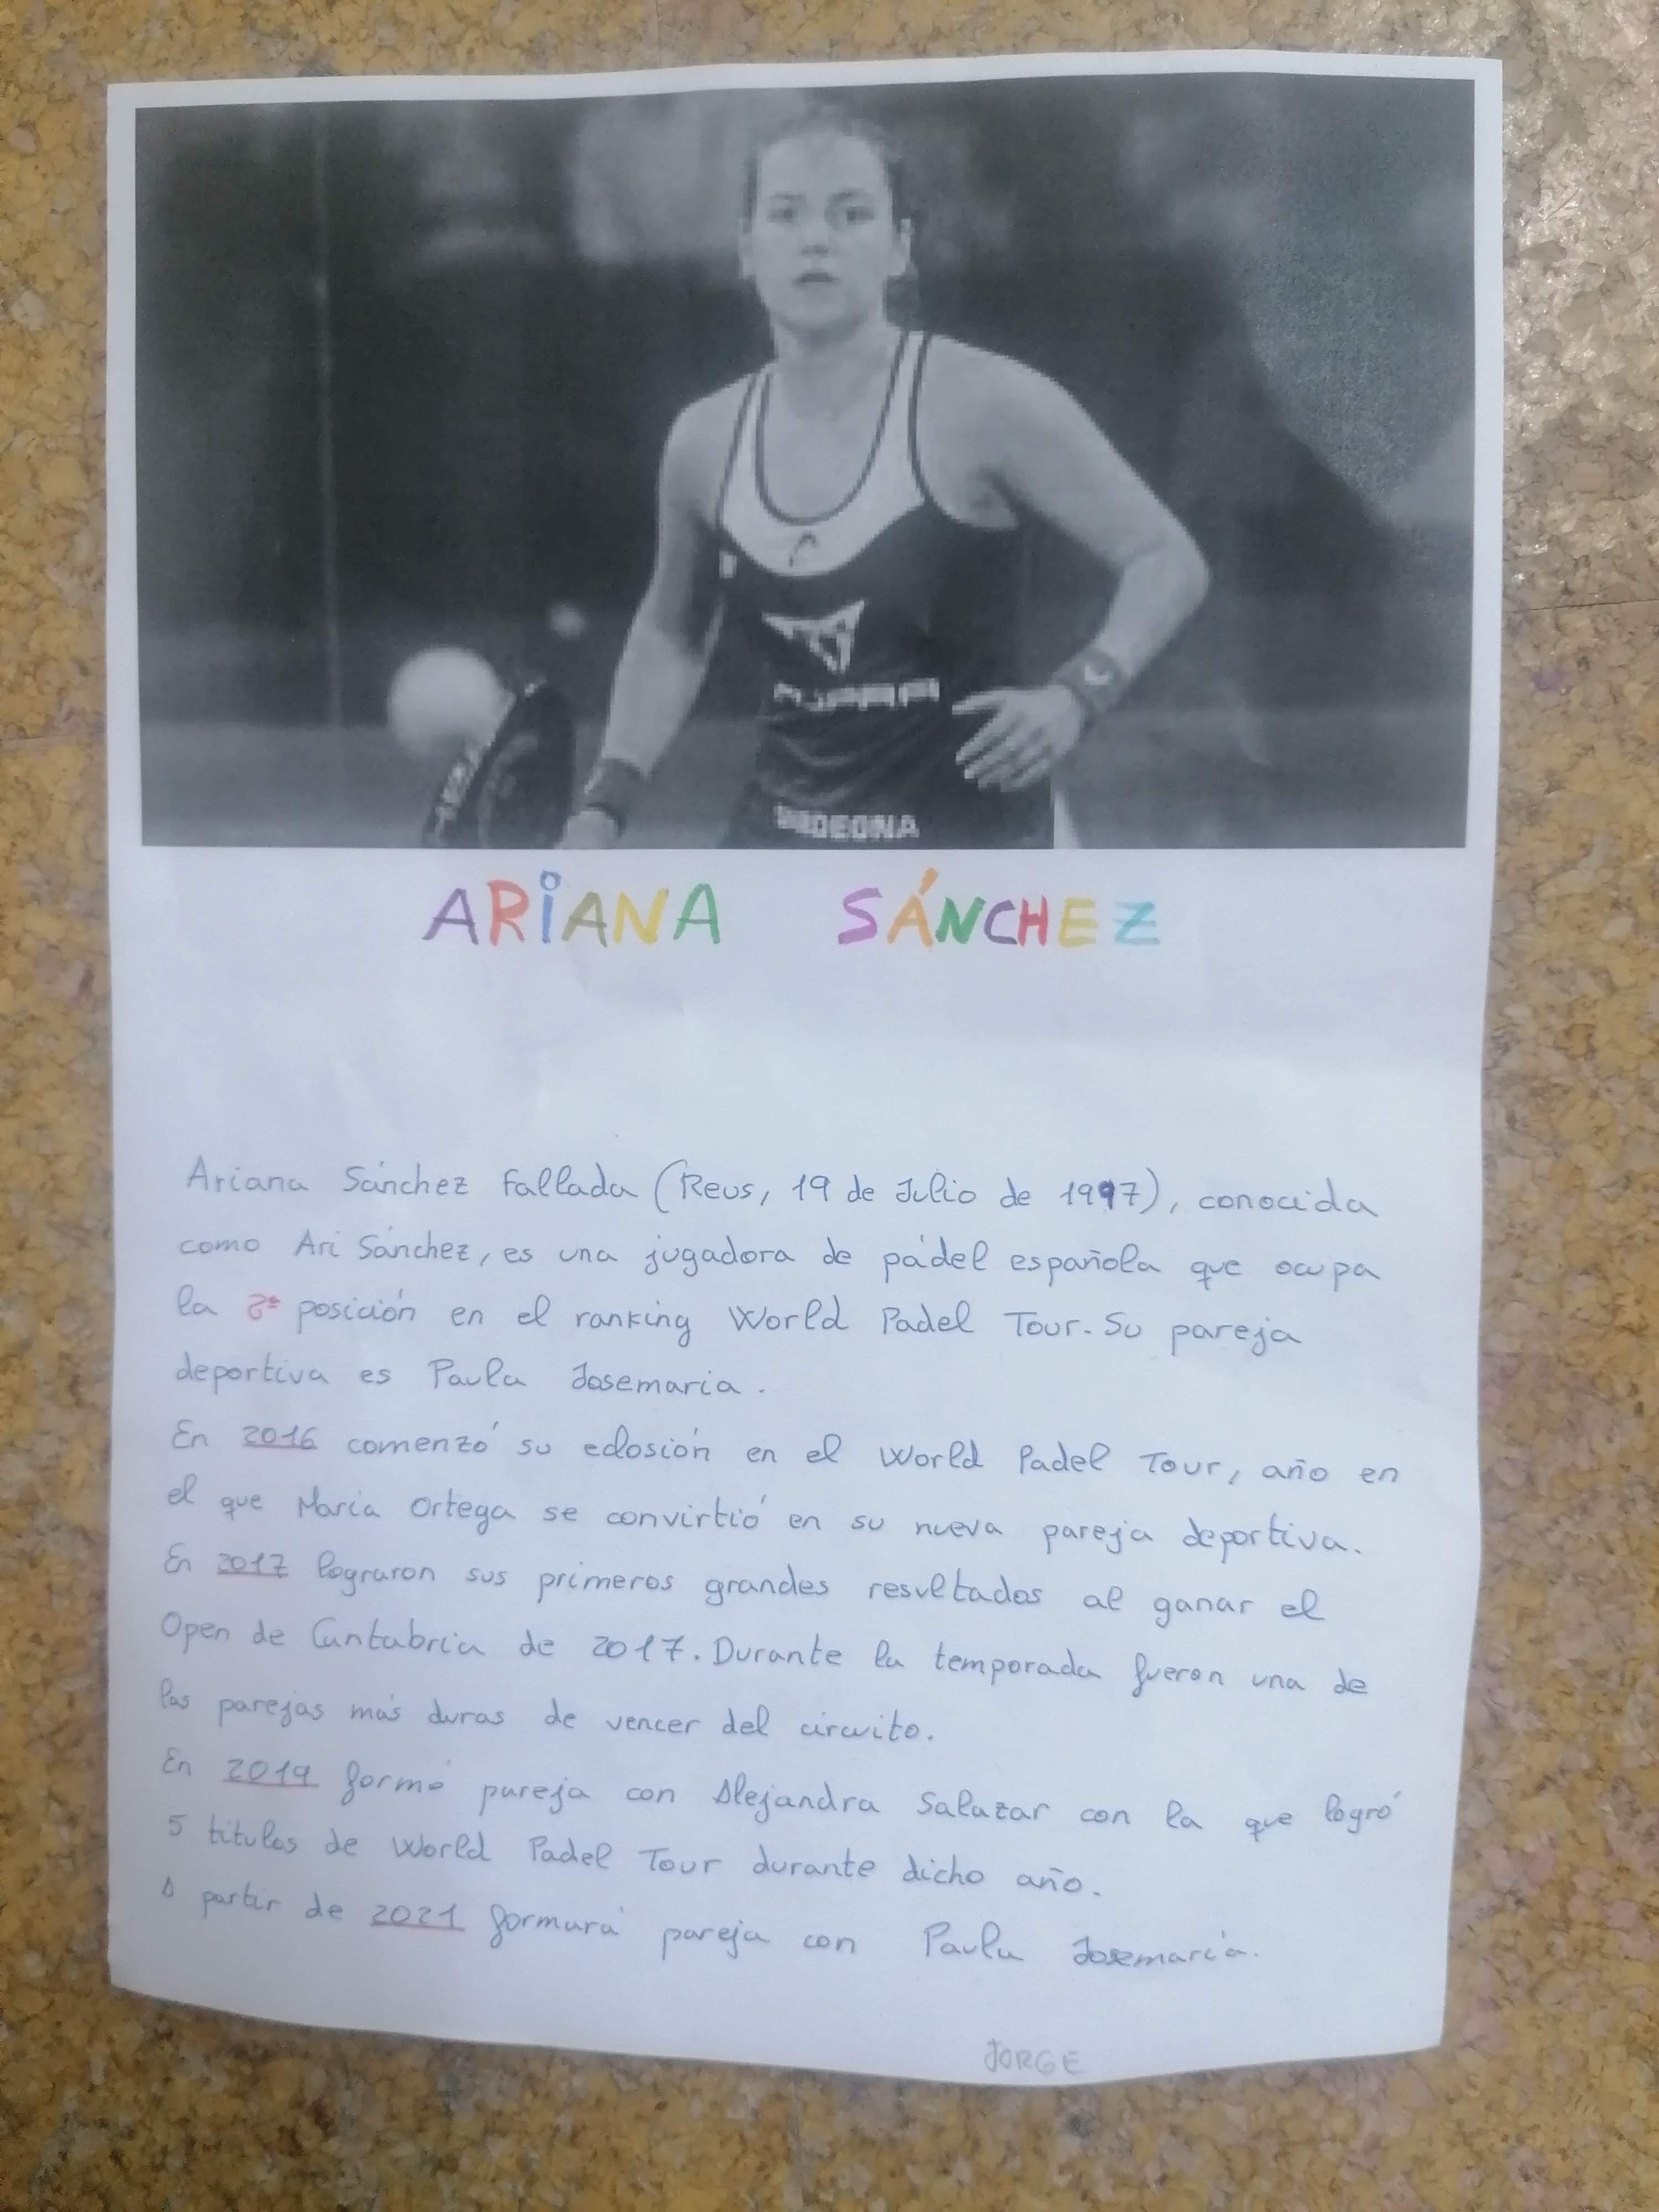 ARIANA SÁNCHEZ
Ariana Sánchez Fallada (Reus, 19 de Julio de 1997), conocida
como Ari Sánchez, es una jugadora de pádel española que ocupa
la posición en el ranking World Padel Tour. Su pareja
deportiva es Paula Josemaria.
En 2016 comenzó su eclosión en el World Padel Tour, año en
el que María Ortega se convirtió en su nueva pareja deportiva.
En 2017 lograron sus primeros grandes resultados al ganar el
Open de Cantabria de 2017. Durante la temporada fueron una de
las parejas más duras de vencer del circuito.
En 2019 formó pareja con Alejandra Salazar con la que logró
5 títulos de World Padel Tour durante dicho año.
A partir de 2021 formará pareja con Paula Josemaría.
JORGE